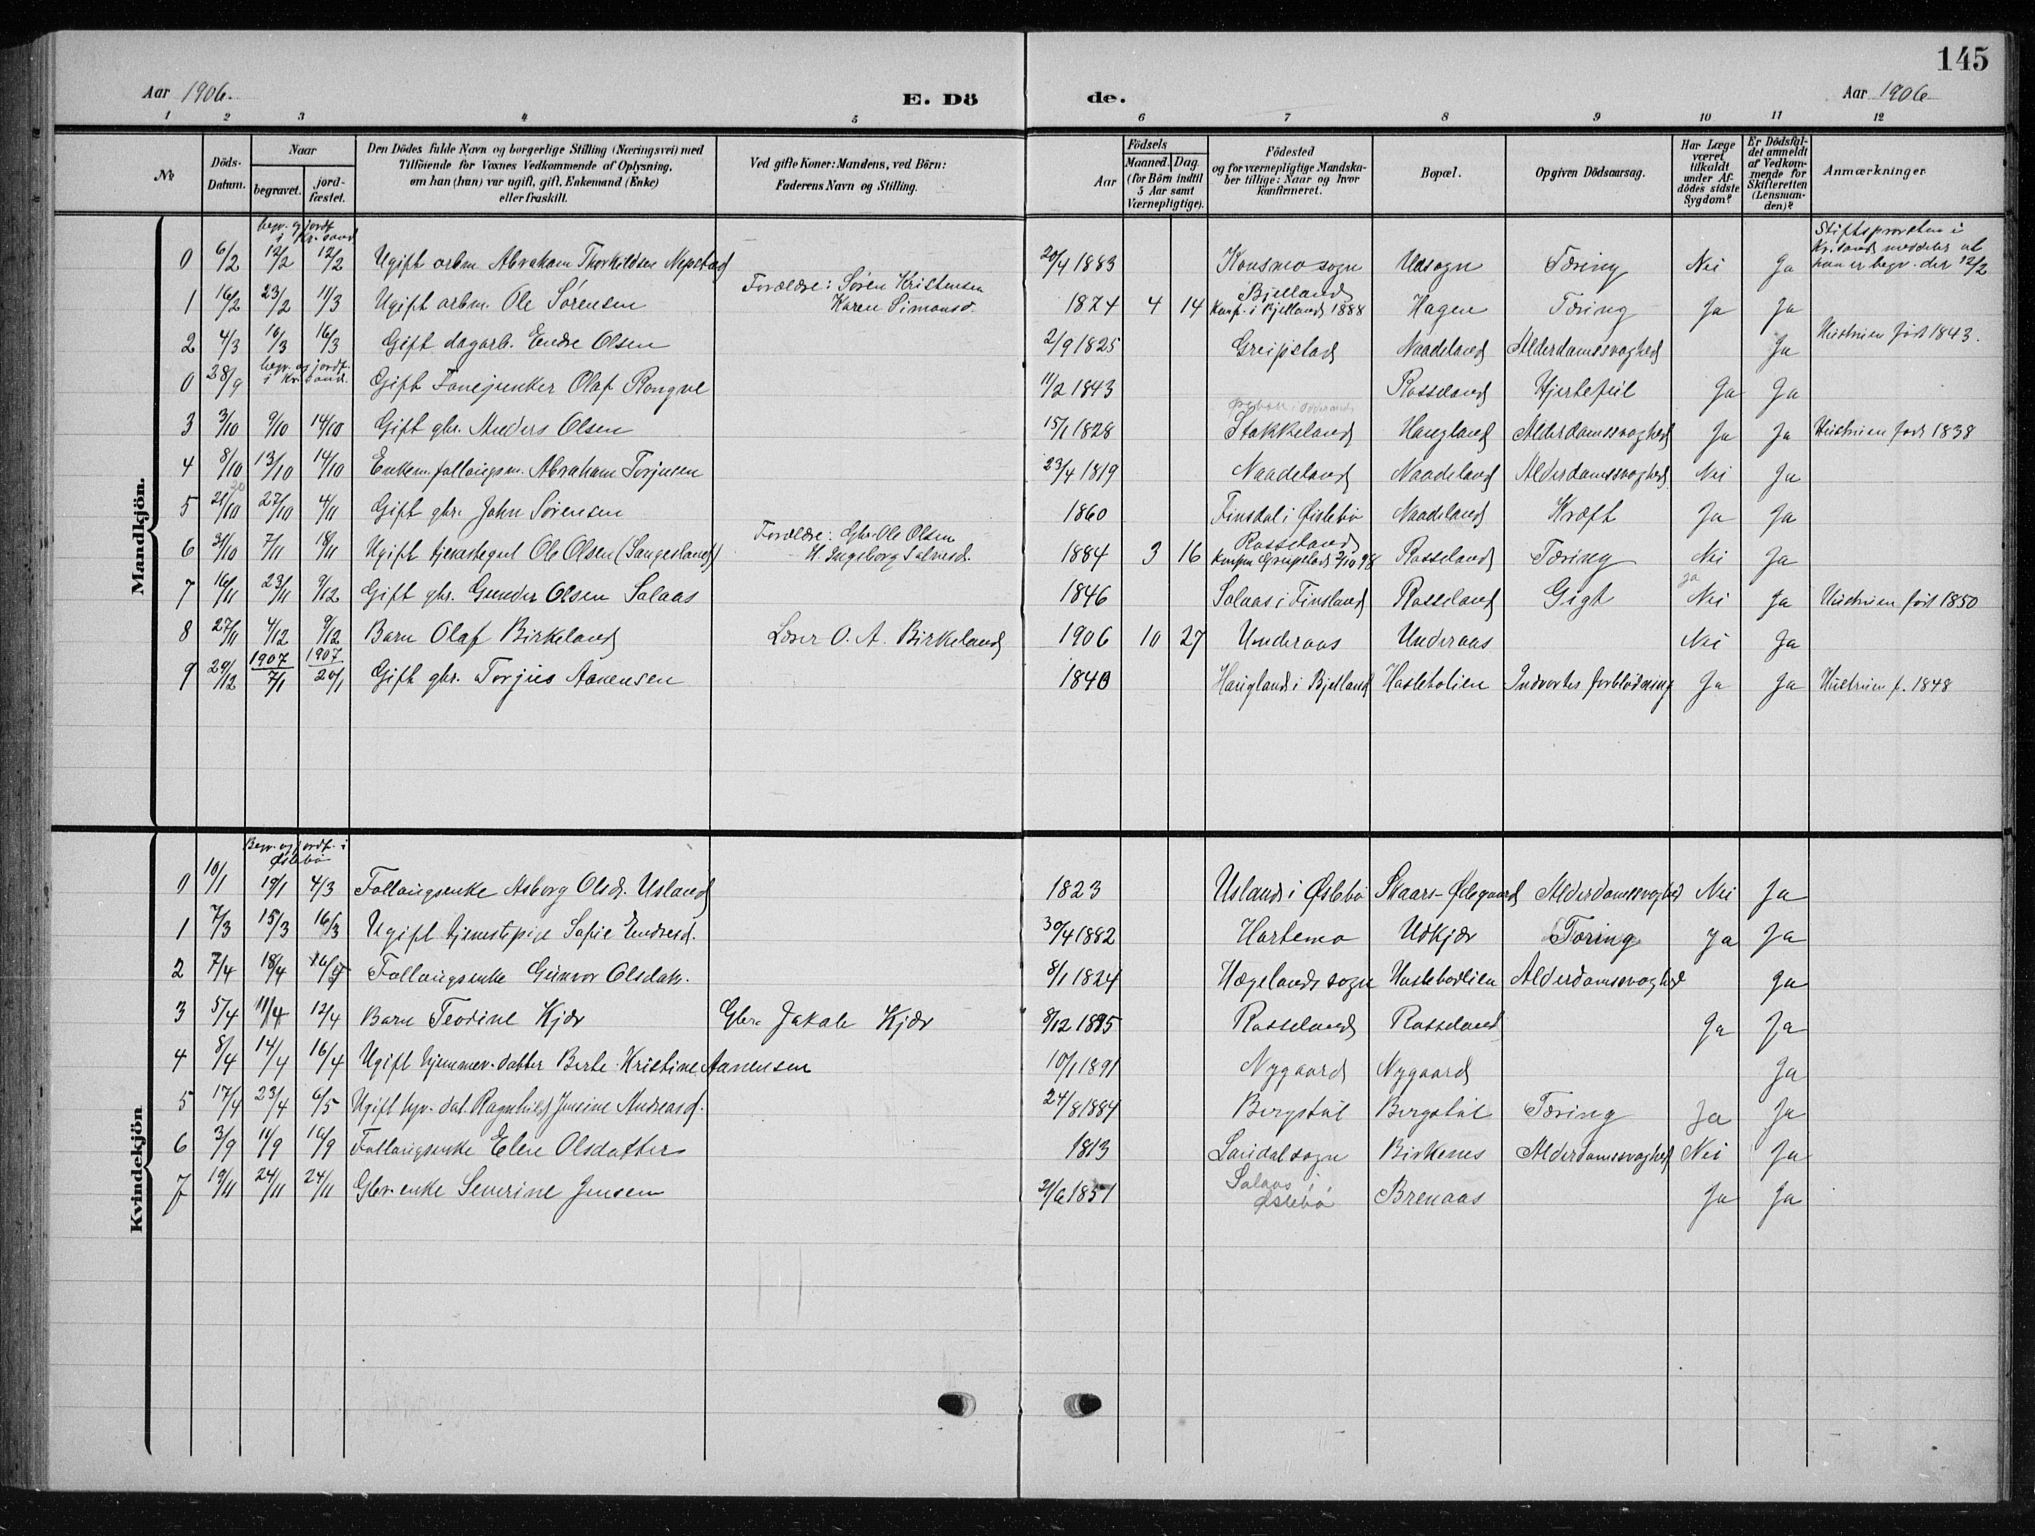 145
Aar 1906.
E. Dö
de.
Aar 1906
1 2 3 4 5 6 7 8 9 10 11 12
№
Döds-Datum.
Naar
begravet.
jord-fæstet.
Den Dödes fulde Navn og borgerlige Stilling (Næringsvei) med
Tilföiende for Voxnes Vedkommende af Oplysning,
om han (hun) var ugift, gift, Enkemand (Enke)
eller fraskilt.
Ved gifte Koner: Mandens, ved Börn:
Faderens Navn og Stilling.
Aar
Födsels
Maaned. Dag.
(for Börn indtil
5 Aar samt
Værnepligtige).
Födested
og for værnepligtige Mandska-
ber tillige: Naar og hvor
konfirmeret.
Bopæl.
Opgiven Dödsaarsag.
Har Læge
været
tilkaldt
under Af-
dödes sidste
Sygdom?
Er Dödsfal-
det anmeldt
af Vedkom-
mende for
Skifteretten
(Lensman-
den)?
Anmærkninger
Mandkjön.
begr. og jordf. i Kr.sand
0 6/2 12/2 12/2 Ugift arbm. Abraham Thorkildsen Nepstad 20/4 1883 Konsmo sogn Udsogn Tæring Nei Ja Stiftsprovsten i Krisand meddeler at han er begr. der 12/2
1 16/2 23/2 11/3 Ugift arbm. Ole Sørensen Forældre: Søren Kristensen Karen Simonsd. 1874 4 14 Bjelland Konf. i Bjelland 1888 Hagen Tæring Ja Ja
2 4/3 16/3 16/3 Gift dagarb. Endre Olsen 2/9 1825 Greipstad Naadeland Alderdomssvaghed Ja Hustruen født 1843.
0 28/9 begr. og jordf. i Kr.sand. Gift Fanejunker Olaf Rongve 11/2 1843 Rosseland Hjertefeil Ja Ja
3 3/10 9/10 14/10 Gift gbr. Anders Olsen 15/1 1828 Stokkeland Haugland Alderdomssvaghed Ja Ja Hustruen født 1838
4 8/10 13/10 14/10 Enkem. follaugsm. Abraham Torjusen 23/4 1819 Naadeland Naadeland Alderdomssvaghed Nei Ja
5 21/10 27/10 4/11 Gift gbr. John Sørensen 1860 Finsdal i Øslebø Naadeland Kræft Ja Ja
6 31/10 7/11 18/11 Ugift tjenestegut Ole Olsen (Saugesland) Forældre: Gbr. Ole Olsen H. Ingeborg Salvesd. 1884 3 16 Rosseland Konf. Greipstad 2/10 98 Rosseland Tæring Nei Ja
7 16/11 23/11 9/12 Gift gbr. Gunder Olsen Salaas 1846 Salaas i Finsland Rosseland Gigt Ja Nei Ja Hustruen født 1850
8 27/11 4/12 9/12 Barn Olaf Birkeland Lærer O. A. Birkeland 1906 10 27 Underaas Underaas Nei Ja
9 29/12 1907 7/1 1907 20/1 Gift gbr. Torjus Aanensen 1840 Haugland i Bjelland Hasteholien Indvortes forblødning Ja Ja Hustruen f. 1848
Kvindekjön
Begr. og jordf. i Øslebø
0 10/1 19/1 4/3 Follaugsenke Asborg Olsd. Usland 1823 Usland i Øslebø Skaars-Ødegaard Alderdomssvaghed Nei Ja
1 7/3 15/3 16/3 Ugift tjenestepige Sofie Endresd. 30/4 1882 Hortemo Udkjær Tæring Ja Ja
2 7/4 18/4 Follaugsenke Gunvor Olsdatr. 8/1 1824 Hægeland sogn Hastebodlien Alderdomssvaghed Ja
3 5/4 11/4 12/4 Barn Teodine Kjær Gbr. Jakob Kjær 8/12 1895 Rosseland Rosseland Ja Ja
4 8/4 14/4 16/4 Ugift hjemmev. datter Berte Kristine Aanensen 10/1 1891 Nygaard Nygaard Ja
5 17/4 23/4 6/5 Ugift hjv. dat. Ragnhild Jensine Andreasd. 24/8 1884 Bergstøl Bergstøl Tæring Ja Ja
6 3/9 11/9 16/9 Follaugsenke Elen Olsdatter 1813 Laudal sogn Birkenes Alderdomssvaghed Nei Ja
7 19/11 24/11 24/11 Gbr. enke Severine Jensen 21/6 1857 Salaas i Øslebø Brenaas Ja Ja